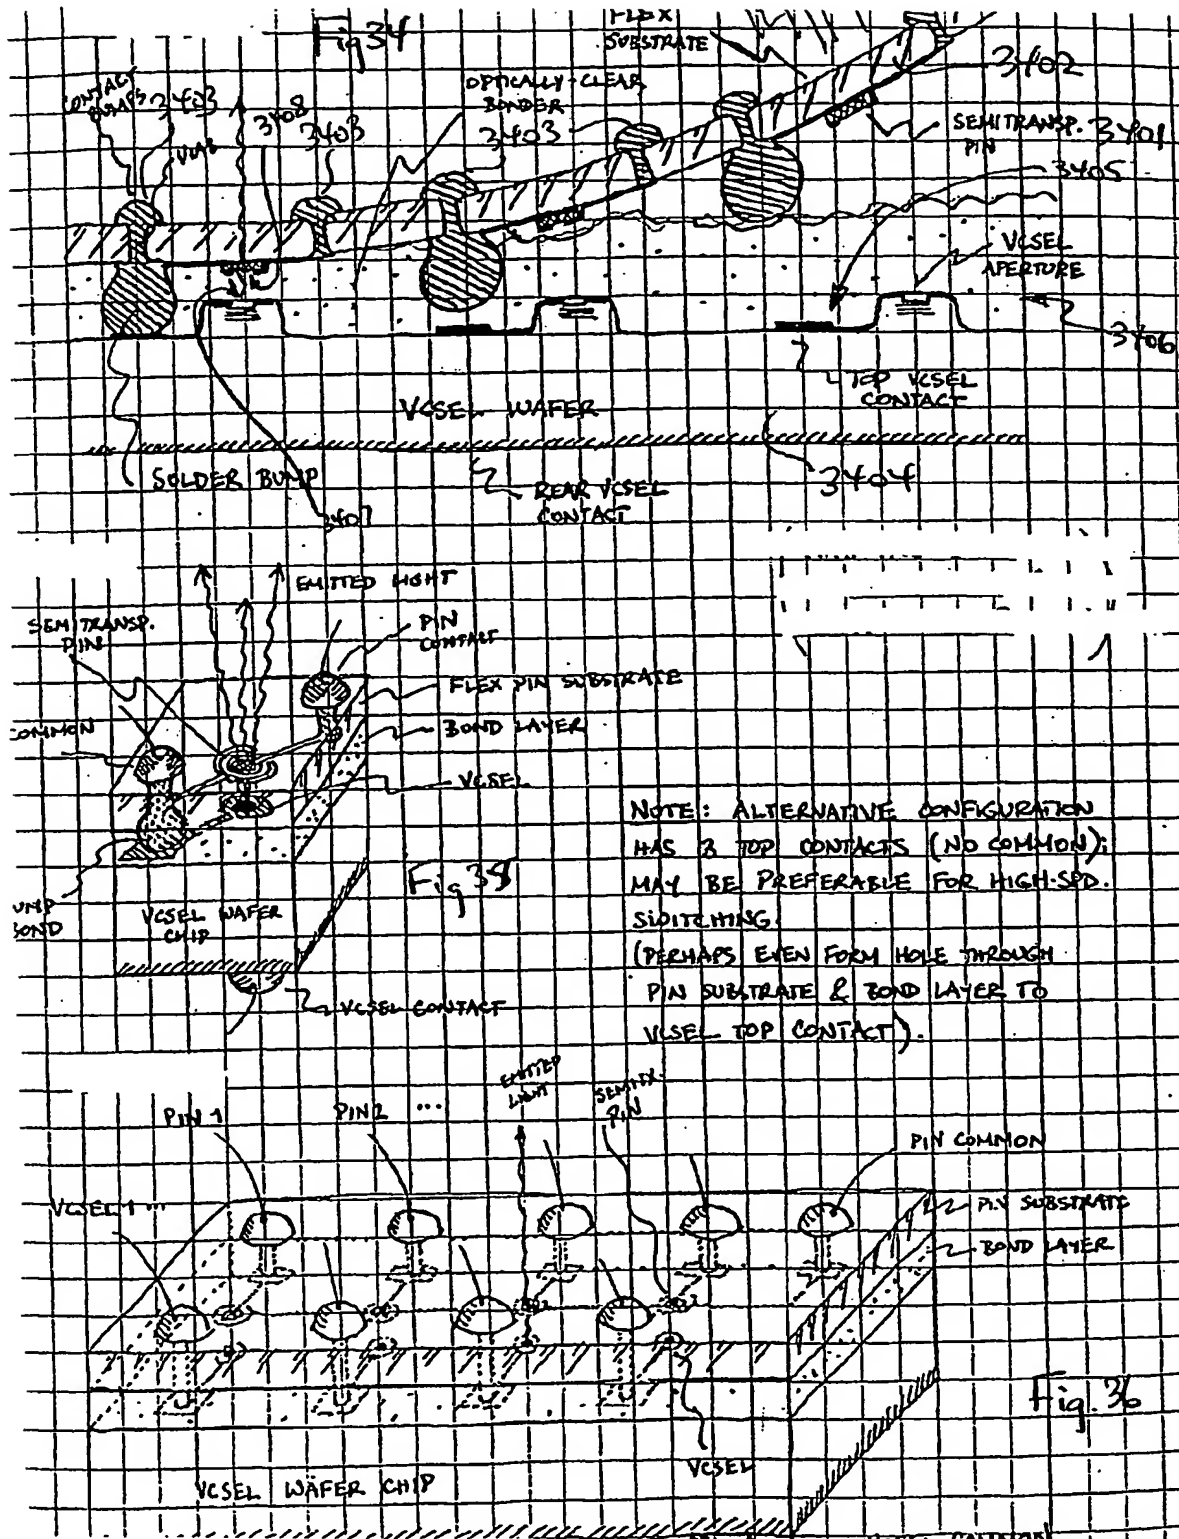 Fig 34
FLEX
SUBSTRATE
3402
CONTACT
BUMPS
3403
VIAS
3408
3403
OPTICALLY-CLEAR
BONDER
3403
SEMITRANSP.
PIN
3401
3405
VCSEL
APERTURE
3406
TOP VCSEL
CONTACT
VCSEL WAFER
SOLDER BUMP
3407
REAR VCSEL
CONTACT
3404
EMITTED LIGHT
SEMITRANSP.
PIN
PIN
CONTACT
FLEX PIN SUBSTRATE
COMMON
BOND LAYER
VCSEL
UMP
BOND
VCSEL WAFER
CHIP
VCSEL CONTACT
NOTE: ALTERNATIVE CONFIGURATION
HAS TOP CONTACTS (NO COMMON);
MAY BE PREFERABLE FOR HIGH-SPD.
SWITCHING.
(PERHAPS EVEN FORM HOLE THROUGH
PIN SUBSTRATE & BOND LAYER TO
VCSEL TOP CONTACT).
PIN 1
PIN 2 ...
EMITTED
LIGHT
PIN
PIN COMMON
VCSEL 1 ...
PIN SUBSTRATE
BOND LAYER
Fig. 36
VCSEL WAFER CHIP
VCSEL